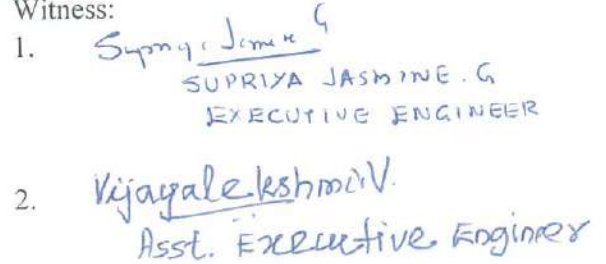 Witness:
1. Supriya Jasmine G
SUPRIYA JASMINE. G
EXECUTIVE ENGINEER
2. Vijayalekshmi.V.
Asst. Executive Engineer